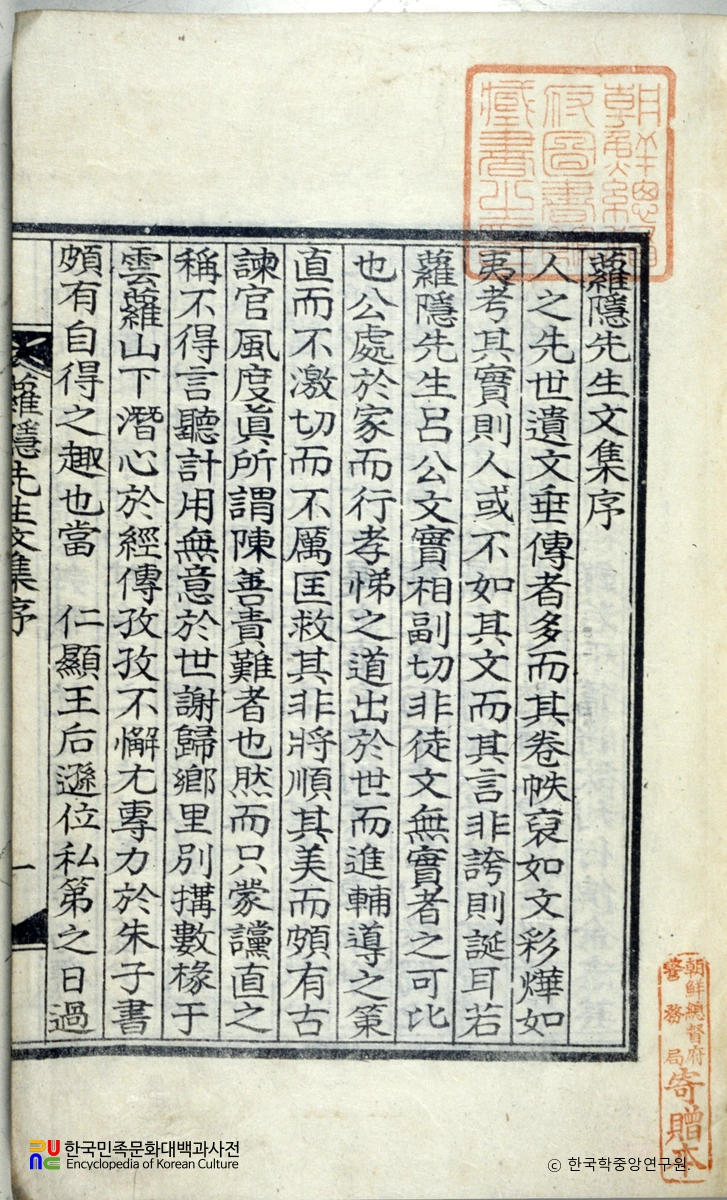 蘿隱先生文集序
人之先世遺文垂傳者多而其卷帙裒如文彩燁如
夷考其實則人或不如其文而其言非誇則誕耳若
蘿隱先生呂公文實相副切非徒文無實者之可比
也公處於家而行孝悌之道出於世而進輔導之策
直而不激切而不厲匡救其非將順其美而頗有古
諫官風度眞所謂陳善責難者也然而只蒙讜直之
稱不得言聽計用無意於世謝歸鄉里別搆數椽于
雲蘿山下潛心於經傳孜孜不懈尤專力於朱子書
頗有自得之趣也當 仁顯王后遜位私第之日過
蘿隱先生文集序
一
朝鮮總督府圖書館藏書之印
朝鮮總督府
警務局
寄贈本
한국민족문화대백과사전
Encyclopedia of Korean Culture
© 한국학중앙연구원